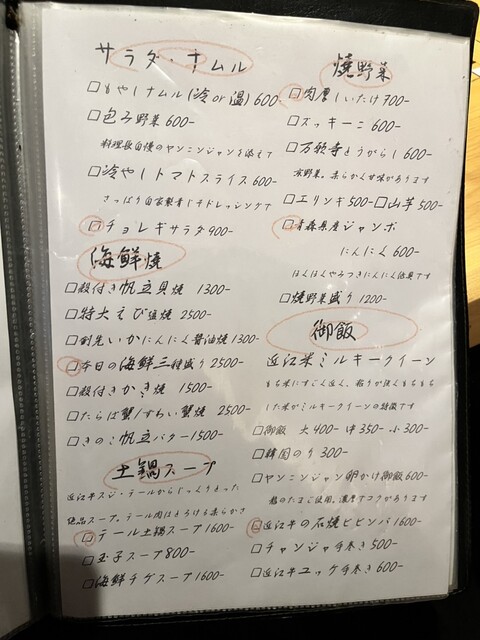 サラダ・ナムル
□もやしナムル(冷or温)600-
□包み野菜 600-
料理長自慢のヤンニンジャンを添えて
□冷やしトマトスライス 600-
さっぱり自家製青じそドレッシングで
□チョレギサラダ 900-
海鮮焼
□殻付き帆立貝焼 1300-
□特大えび塩焼 2500-
□剣先いかにんにく醤油焼 1300-
□本日の海鮮三種盛り 2500-
□殻付きかき焼 1500-
□たらば蟹/ずわい蟹焼 2500-
□きのこ帆立バター 1500-
土鍋スープ
近江牛スジ・テールからじっくりとった
絶品スープ。テール肉はとろける柔らかさ
□テール土鍋スープ 1600-
□玉子スープ 800-
□海鮮チゲスープ 1600-
焼野菜
□肉厚しいたけ 700-
□ズッキーニ 600-
□万願寺とうがらし 600-
京野菜。柔らかく甘味があります
□エリンギ 500-□山芋 500-
□青森県産ジャンボ
にんにく 600-
ほくほくやみつきにんにく
□焼野菜盛り 1200-
御飯
近江米ミルキークイーン
もち米にすごく近く、粘りが強くもちもち
した米がミルキークイーンの特徴です
□御飯 大400- 中350- 小300-
□韓国のり 300-
□ヤンニンジャン卵かけ御飯 600-
のたまご使用。濃厚でコクがあります
□近江牛の石焼ビビンバ 1600-
□チャンジャ手巻き 500-
□近江牛ユッケ手巻き 600-